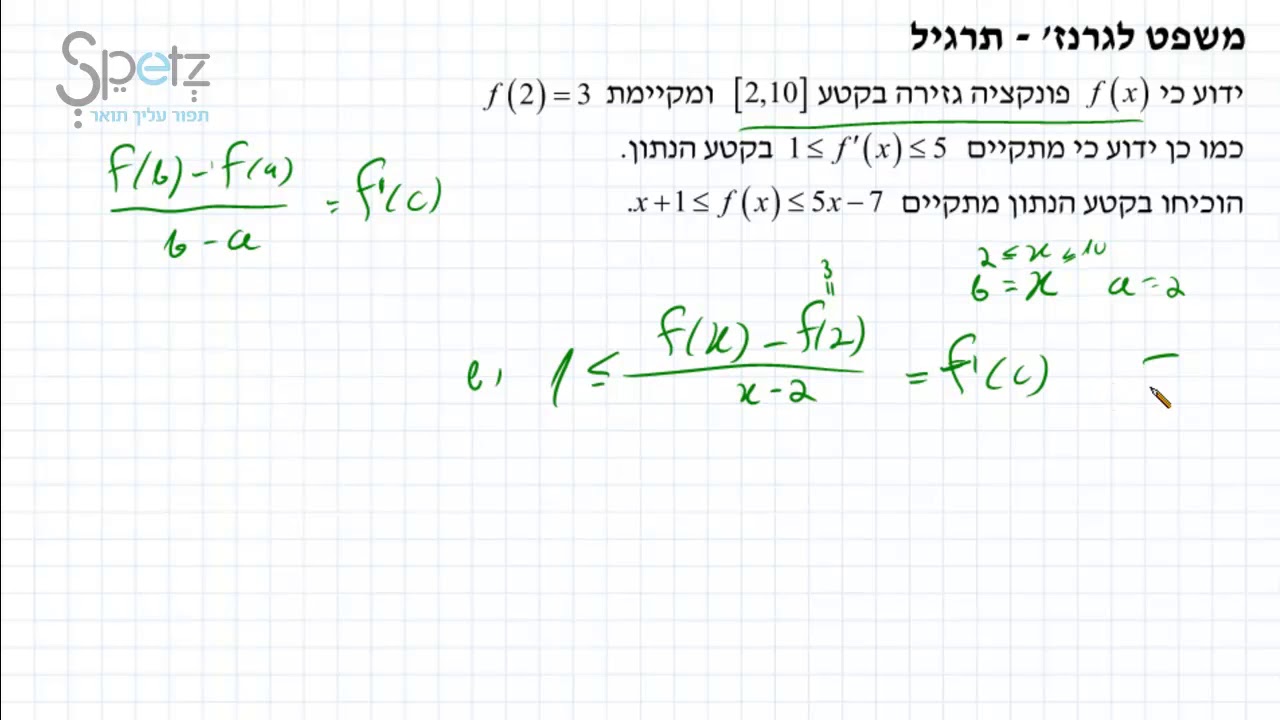 משפט לגרנז' - תרגיל
Spetz
תפור עליך תואר
ידוע כי f(x) פונקציה גזירה בקטע [2,10] ומקיימת f(2)=3
כמו כן ידוע כי מתקיים 1≤f'(x)≤5 בקטע הנתון.
הוכיחו בקטע הנתון מתקיים x+1≤f(x)≤5x−7.
f(b)-f(a) / b-a = f'(c)
2≤x≤10
b=x a=2
3
=
1≤ f(x)-f(2) / x-2 = f'(c)